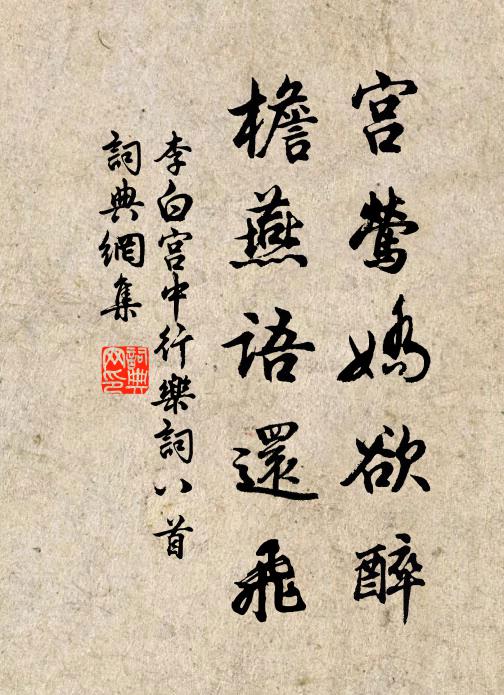 宮鶯嬌欲醉
檐燕語還飛
李白宮中行樂詞八首
詞典網集
詞典
网印